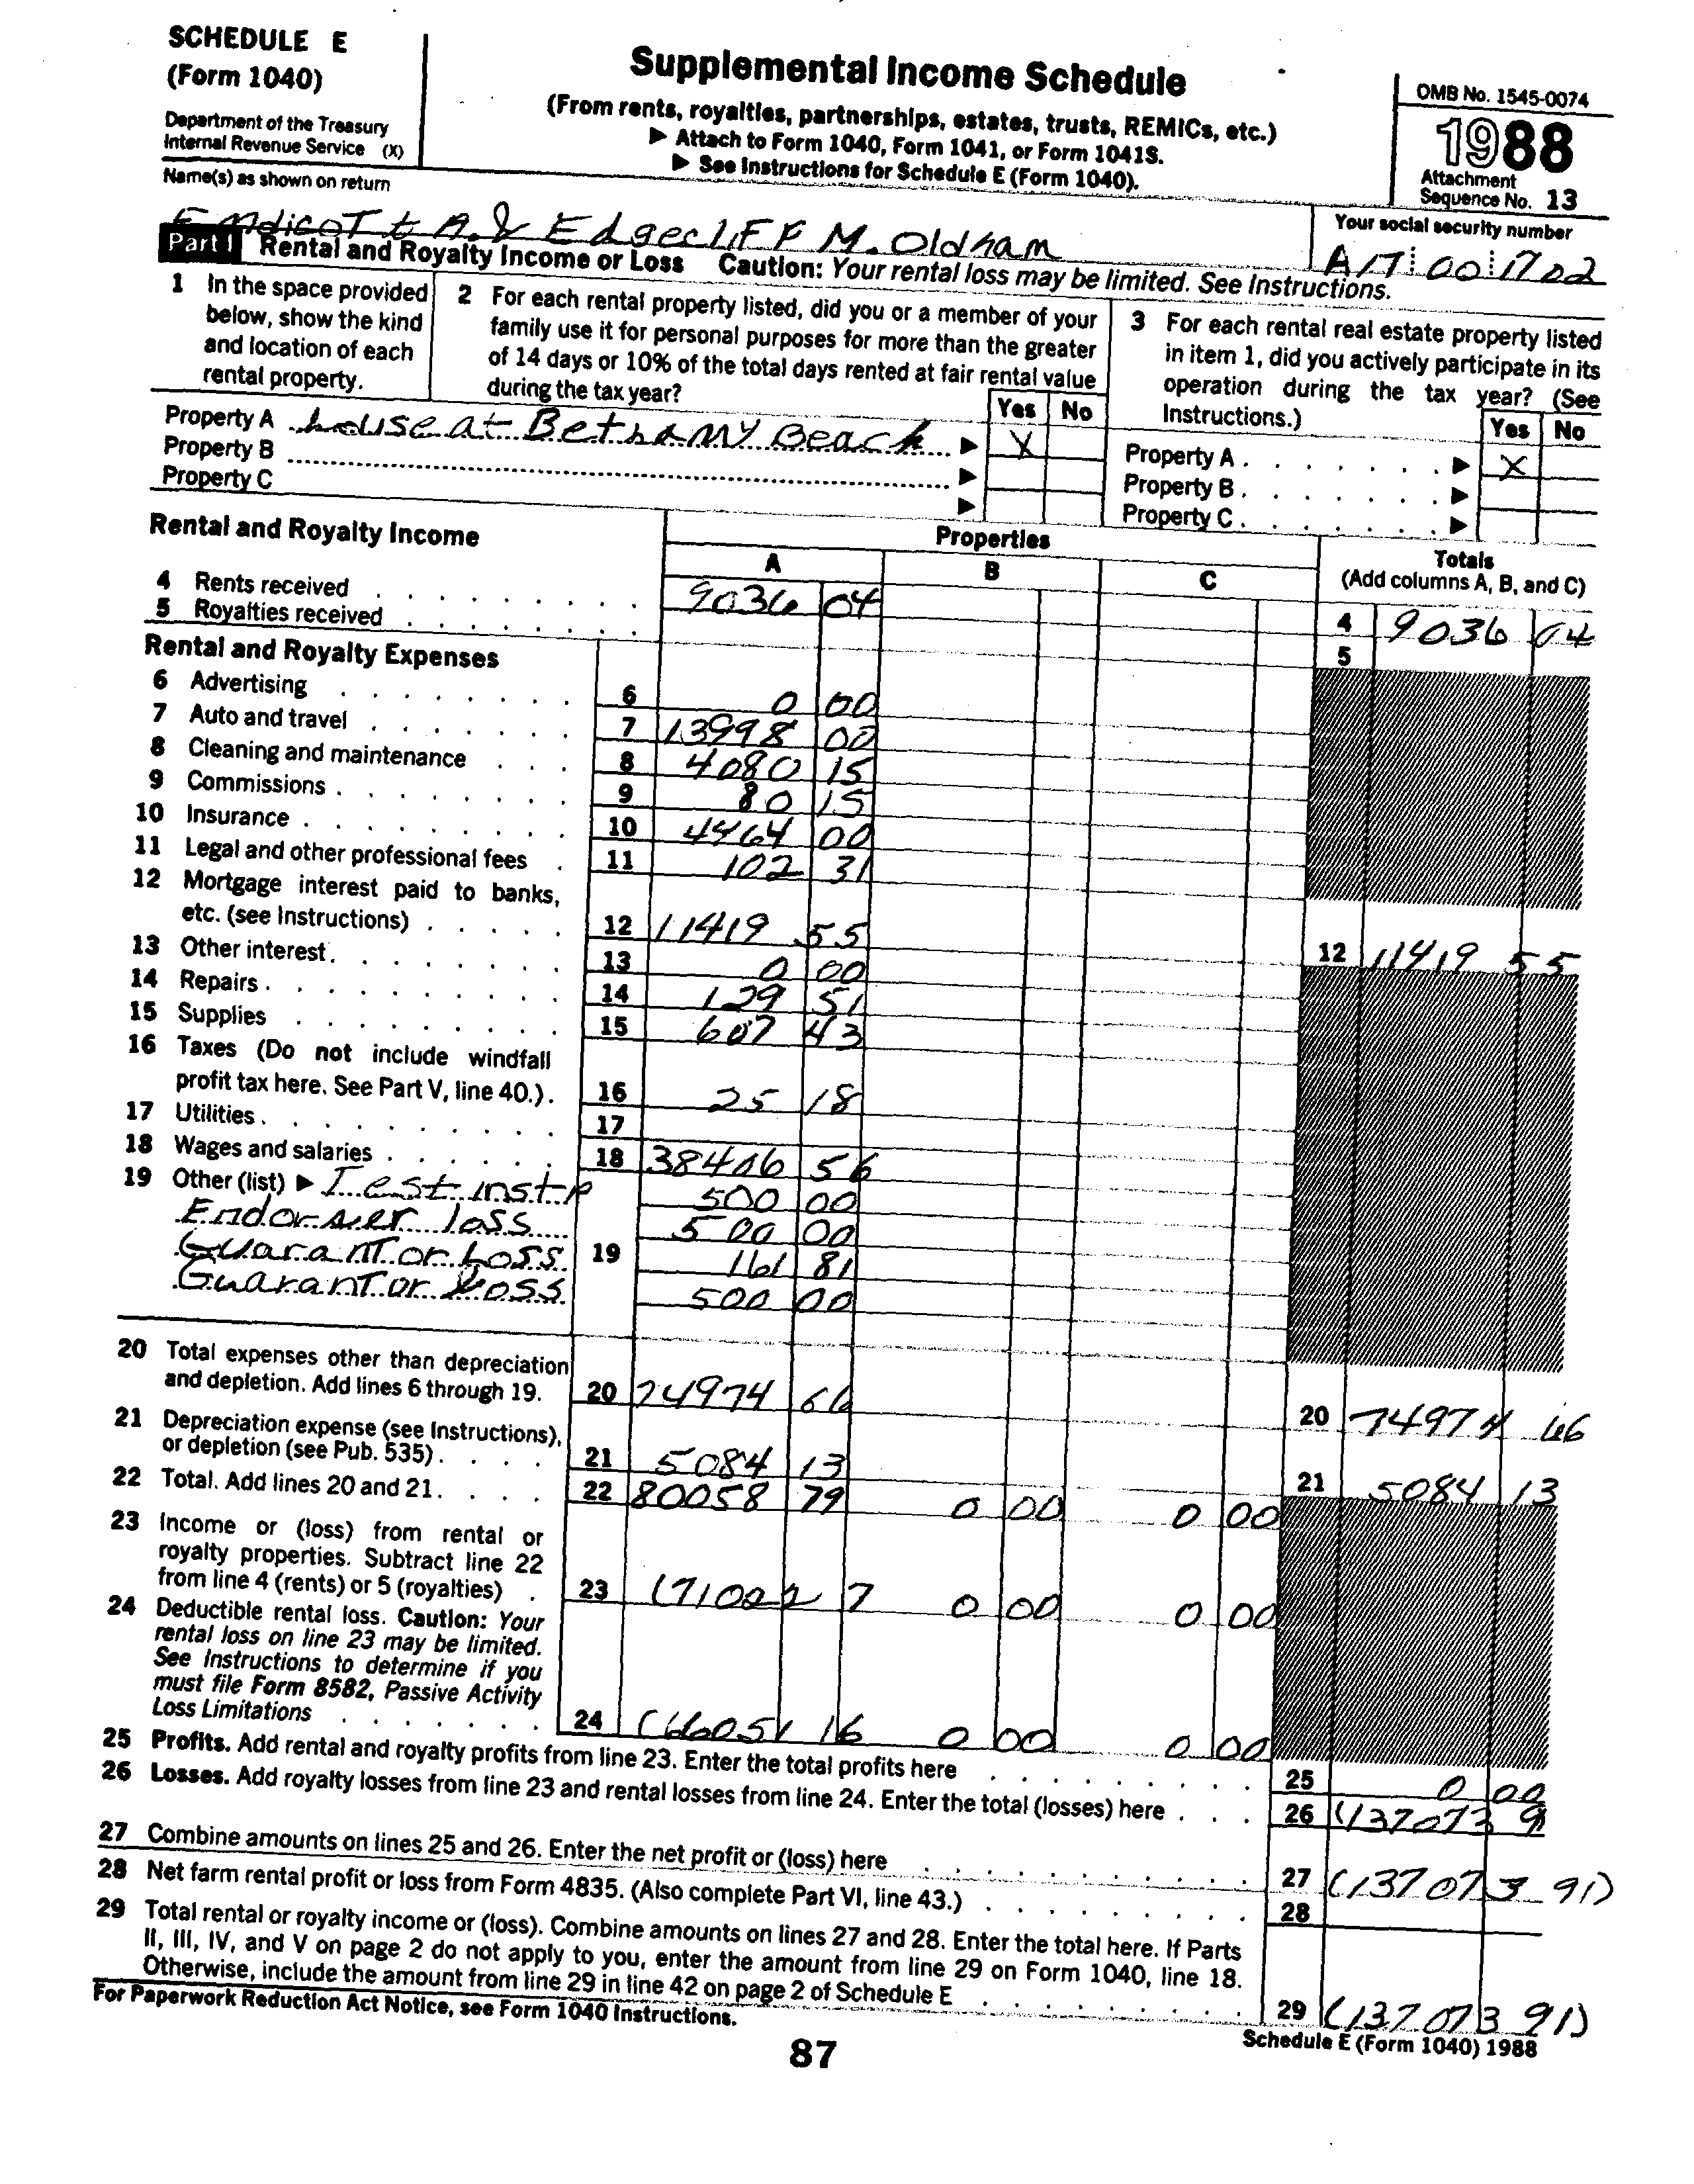 SCHEDULE E
(Form 1040)
Department of the Treasury
Internal Revenue Service (X)
Supplemental Income Schedule
(From rents, royalties, partnerships, estates, trusts, REMICs, etc.)
▶ Attach to Form 1040, Form 1041, or Form 1041S.
▶ See Instructions for Schedule E (Form 1040).
OMB No. 1545-0074
1988
Attachment
Sequence No. 13
Name(s) as shown on return
EndicoTt A. & EdgeclIFF M. Oldham
Your social security number
Part I Rental and Royalty Income or Loss Caution: Your rental loss may be limited. See Instructions.
1 In the space provided below, show the kind and location of each rental property.
2 For each rental property listed, did you or a member of your family use it for personal purposes for more than the greater of 14 days or 10% of the total days rented at fair rental value during the tax year?
Yes No
3 For each rental real estate property listed in item 1, did you actively participate in its operation during the tax year? (See Instructions.)
Yes No
Property A house at Bethany Beach ▶ X
Property B ▶
Property C ▶
Property A . . . . . . . ▶ X
Property B . . . . . . . ▶
Property C . . . . . . . ▶
Rental and Royalty Income
Properties
A B C
Totals
(Add columns A, B, and C)
4 Rents received 9036 04 4 9036 04
5 Royalties received 5
Rental and Royalty Expenses
6 Advertising 6 0 00
7 Auto and travel 7 13998 00
8 Cleaning and maintenance 8 4080 15
9 Commissions 9 80 15
10 Insurance 10 4464 00
11 Legal and other professional fees 11 102 31
12 Mortgage interest paid to banks,
etc. (see Instructions) 12 11419 55 12 11419 55
13 Other interest 13 0 00
14 Repairs 14 129 51
15 Supplies 15 607 43
16 Taxes (Do not include windfall
profit tax here. See Part V, line 40.) 16 25 18
17 Utilities 17
18 Wages and salaries 18 38406 56
19 Other (list) ▶ Test inst P 500 00
Endorser loss 500 00
Guarantor Loss 19 161 81
Guarantor Loss 500 00
20 Total expenses other than depreciation
and depletion. Add lines 6 through 19. 20 74974 66 20 74974 66
21 Depreciation expense (see Instructions),
or depletion (see Pub. 535) 21 5084 13 21 5084 13
22 Total. Add lines 20 and 21 22 80058 79 0 00 0 00
23 Income or (loss) from rental or
royalty properties. Subtract line 22
from line 4 (rents) or 5 (royalties) 23 (71022 7 0 00 0 00
24 Deductible rental loss. Caution: Your
rental loss on line 23 may be limited.
See Instructions to determine if you
must file Form 8582, Passive Activity
Loss Limitations 24 (66051 16 0 00 0 00
25 Profits. Add rental and royalty profits from line 23. Enter the total profits here 25 0 00
26 Losses. Add royalty losses from line 23 and rental losses from line 24. Enter the total (losses) here 26 (137073 9
27 Combine amounts on lines 25 and 26. Enter the net profit or (loss) here 27 (137073 91)
28 Net farm rental profit or loss from Form 4835. (Also complete Part VI, line 43.) 28
29 Total rental or royalty income or (loss). Combine amounts on lines 27 and 28. Enter the total here. If Parts
II, III, IV, and V on page 2 do not apply to you, enter the amount from line 29 on Form 1040, line 18.
Otherwise, include the amount from line 29 in line 42 on page 2 of Schedule E 29 (137073 91)
For Paperwork Reduction Act Notice, see Form 1040 Instructions.
Schedule E (Form 1040) 1988
87